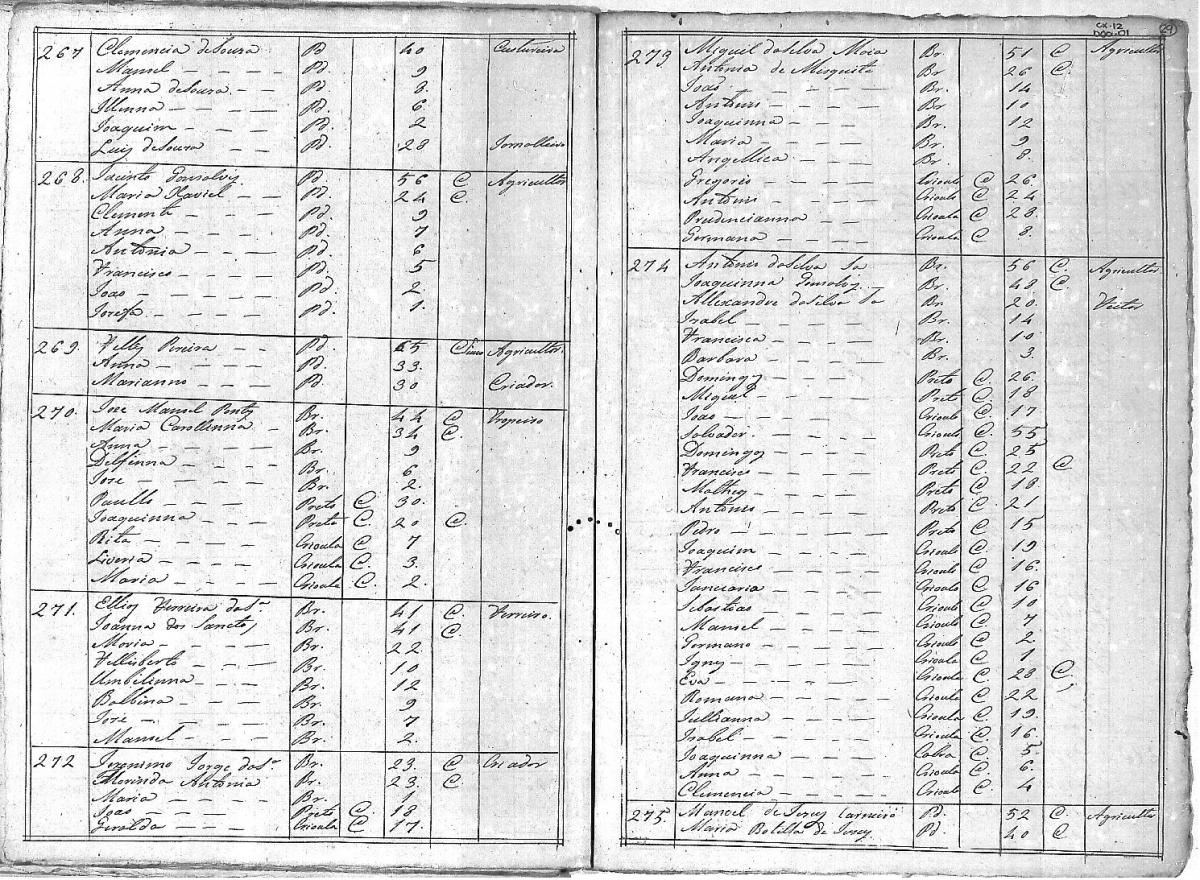 267 Clemencia de Souza Pd. 40 Custureira
Manoel Pd. 9
Anna de Souza Pd. 8
Illenna Pd. 6
Joaquim Pd. 2
Luiz de Souza Pd. 28 Jornalleiro
268. Jacinto Gonsolvez Pd. 56 C. Agricultor
Maria Xaviel Pd. 24 C.
Clemente Pd. 9
Anna Pd. 7
Antonia Pd. 6
Francisco Pd. 5
Joao Pd. 2
Josefa Pd. 1.
269. Pereira Pd. 65 Agricultor.
Anna Pd. 33.
Marianno Pd. 30 Criador.
270. Jose Manoel Br. 44 C Tropeiro
Maria Carollinna Br. 34 C.
Anna Br. 9
Delfinna Br. 6
Jose Br. 2.
Paullo Preto C 30.
Joaquinna Preta C. 20 C.
Rita Crioula C 7
Liveria Crioula C. 3.
Maria Crioula C. 2.
271. Ferreira dos Br. 41 C. Ferreiro.
Joanna dos Sanctos Br. 41 C.
Moria Br. 22
Fellisberto Br. 10
Umbelinna Br. 12
Balbina Br. 9
Jose Br. 7
Manoel Br. 2.
272 Jeronimo Jorge dos Br. 23 C Criador
Morinda Antonia Br. 23. C
Maria Br. 1
Joao Preto C. 18
Geralda Crioula C 17.
CX-12
DOC-01
29
273 Miguel da Silva Moia Br. 51 C Agricultor
Antonia de Mesquita Br 26 C.
Joao Br. 14
Antonio Br 10
Joaquinna Br. 12
Maria Br. 9
Angellica Br. 8.
Gregorio Crioulo C 26.
Antonio Crioulo C 24
Prudencianna Crioula C 28.
Germana Crioula C 8.
274 Antonio da Silva Sa Br. 56 C. Agricultor
Joaquinna Gonsolvz Br. 48 C.
Allexandre da Silva Sa Br 20.
Izabel Br. 14
Francisca Br. 10
Barbara Br. 3.
Domingz Preto C. 26.
Miguel Preto C. 18
Joao Crioulo C 17
Solvador Crioulo C. 55
Domingz Preto C. 25
Francisco Preto C. 22 C
Mathez Preto C. 18
Antonio Preto C. 21
Pedro Preto C. 15
Joaquim Crioulo C 19
Francisco Crioulo C 16.
Janoaria Crioula C 16
Sebastiao Crioulo C 10
Manoel Crioulo C. 7
Germano Crioulo C 2
Crioulo C. 1
Eva Crioula C. 28 C.
Romana Crioula C 22
Jullianna Crioula C. 19.
Izabel Crioula C. 16
Joaquinna Cabra C. 5
Anna Crioula C. 6
Clemencia Crioula C. 4
275. Manoel de Carneiro Pd. 52 C. Agricultor
Maria Botilha de Pd. 40 C